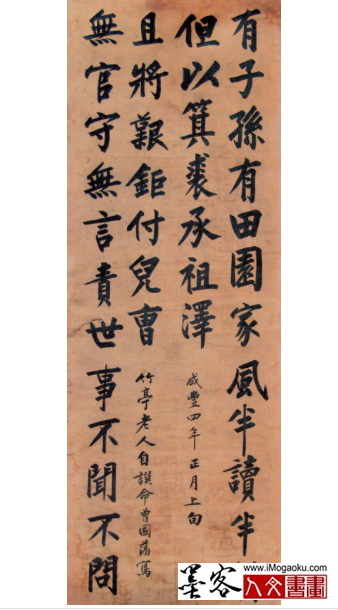 有子孫有田園家風半讀半
但以箕裘承祖澤
咸豐四年正月上旬
且將艱鉅付兒曹
竹亭老人自譔命曾國藩寫
無官守無言責世事不聞不問
www.iMogaoku.com
墨客人文書畫